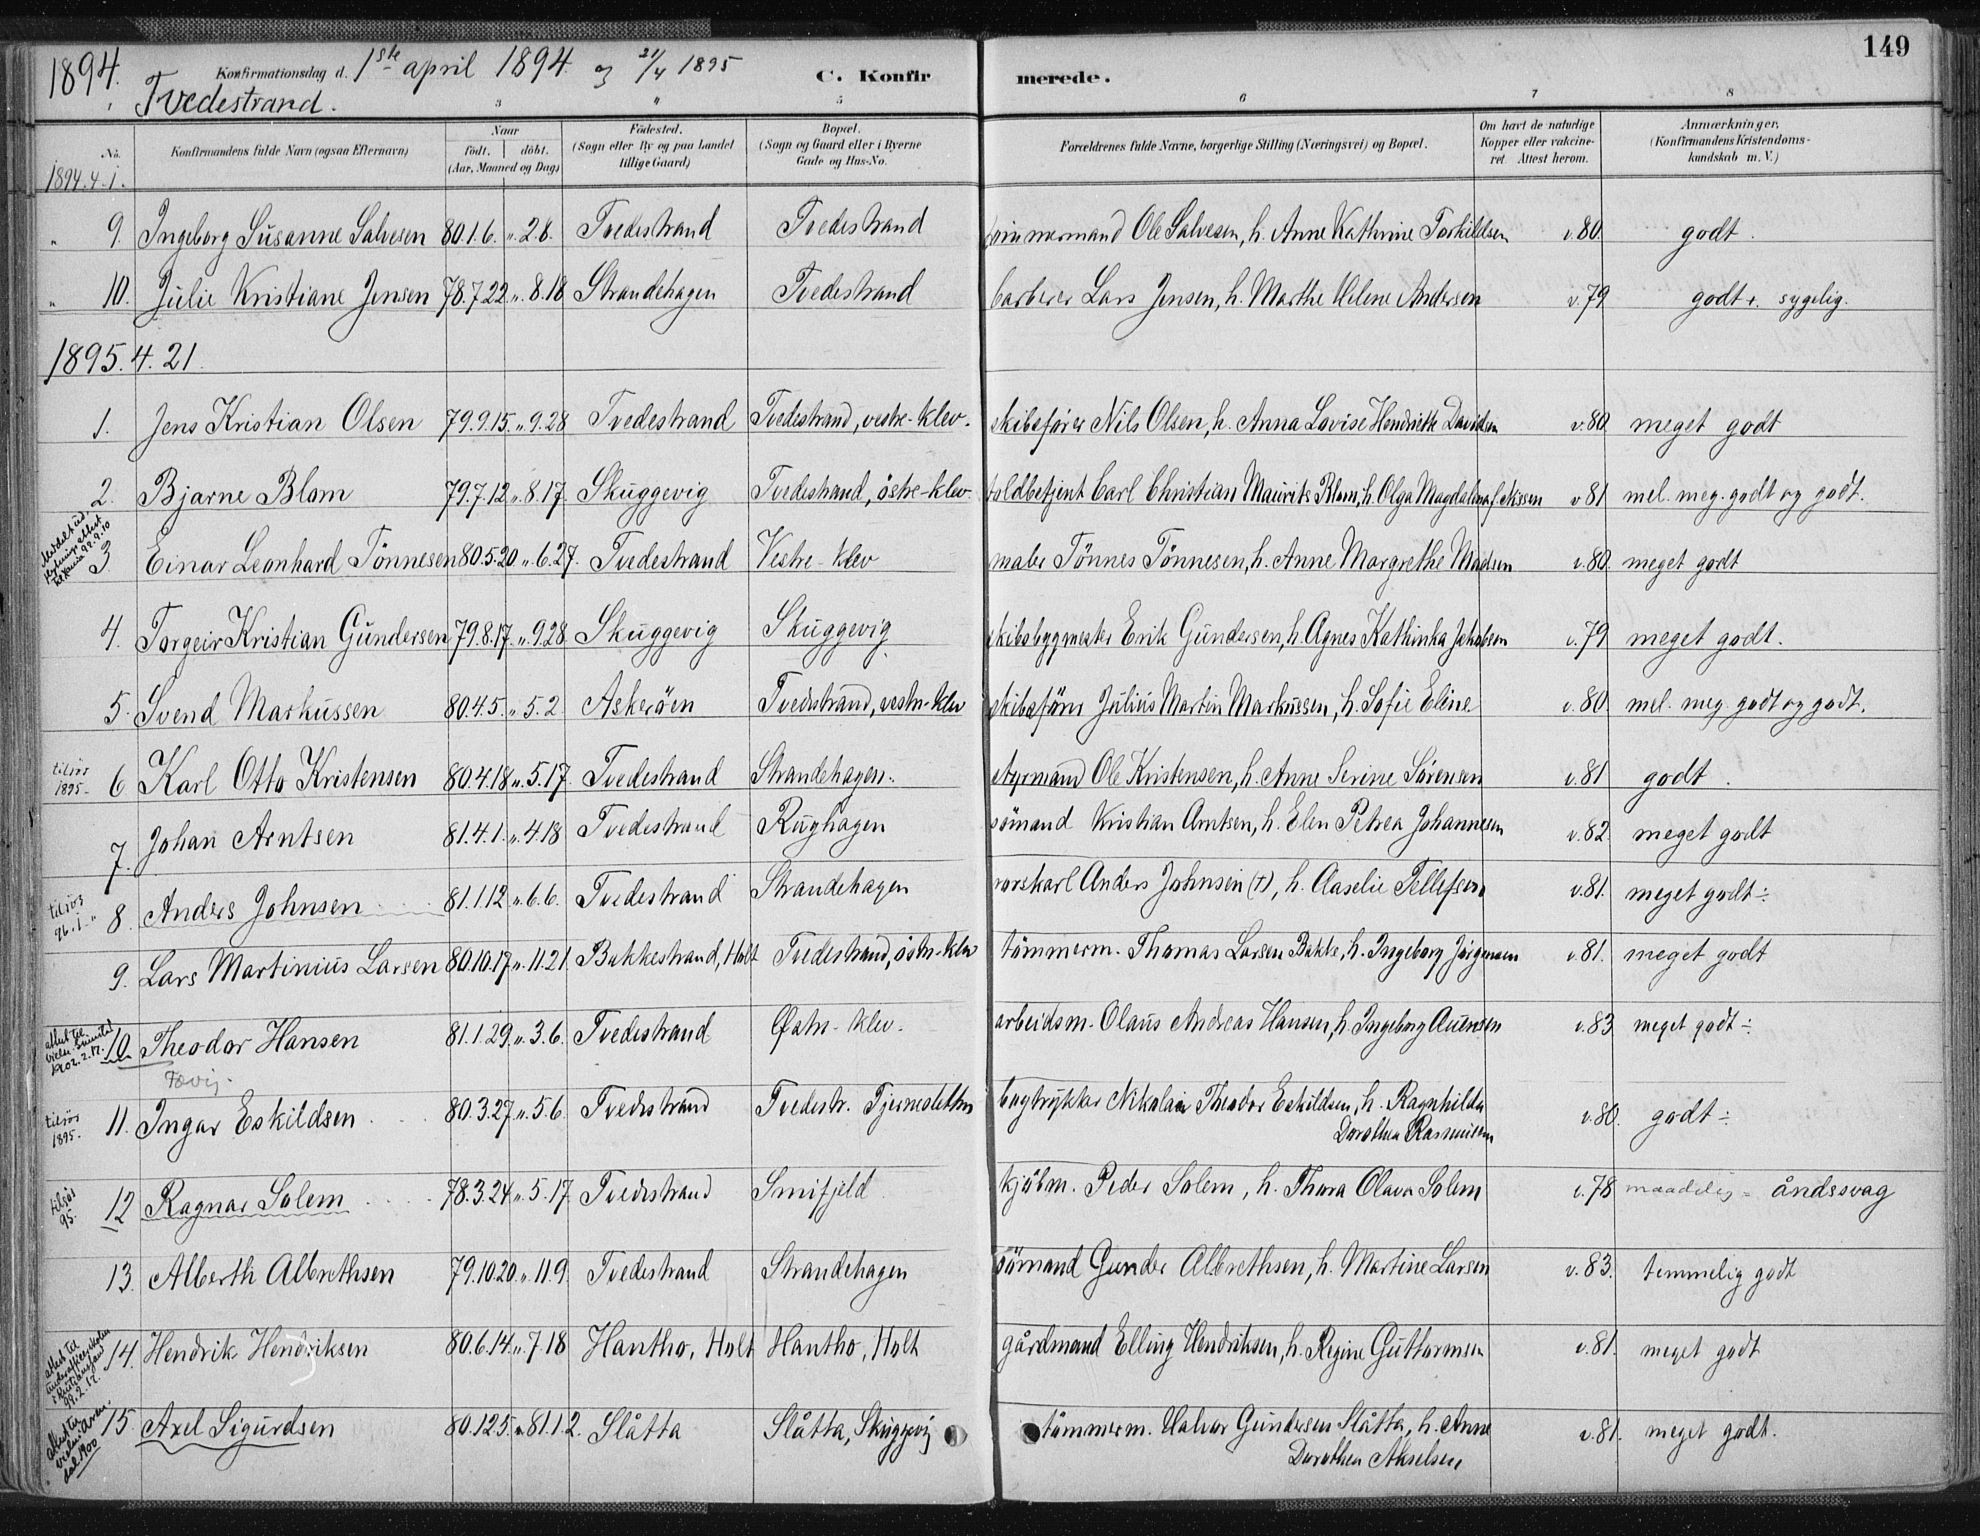 149
1894. Konfirmationsdag d. 1ste april 1894 og 21/4 1895 C. Konfirmerede.
Tvedestrand.
No. Konfirmandens fulde Navn (ogsaa Efternavn) Naar født. døbt. (Aar, Maaned og Dag) Fødested. (Sogn eller By og paa Landet tillige Gaard) Bopæl. (Sogn og Gaard eller i Byerne Gade og Hus-No. Forældrenes fulde Navne, borgerlige Stilling (Næringsvei) og Bopæl. Om havt de naturlige Kopper eller vakcineret. Attest herom. Anmærkninger. (Konfirmandens Kristendomskundskab m. V.)
1894.4.1.
" 9. Ingeborg Susanne Salvesen 80.1.6. ". 2.8. Tvedestrand Tvedestrand tømmermand Ole Salvesen, h. Anne Kathrine Torkildsen v.80. godt.
" 10. Julie Kristiane Jensen 78.7.22 ". 8.18 Strandehagen Tvedestrand barberer Lars Jensen, h. Marthe Helene Andersen v.79 godt÷. sygelig.
1895.4.21.
1. Jens Kristian Olsen 79.9.15. ". 9.28 Tvedestrand Tvedestrand, vestre-klev. skibsfører Nils Olsen, h. Anna Lovise Hendrikke Davidsen v.80 meget godt
2. Bjarne Blom 79.7.12 ". 8.17. Skuggevig Tvedestrand, østre-klev. toldbetjent Carl Christian Maurits Blom, h. Olga Magdalena v 81 mel. meg. godt og godt.
3. Einar Leonhard Tönnesen 80.5.20. ". 6.27. Tvedestrand Vestre-klev maler Tönnes Tönnesen, h. Anne Margrethe Madsen v.80. meget godt
4. Torgeir Kristian Gundersen 79.8.17. ". 9.28 Skuggevig Skuggevig skibsbygmester Erik Gundersen, h. Agnes Kathinka Jakobsen v.79 meget godt.
5. Svend Markussen 80.4.5. ". 5.2. Askerøen Tvedestrand, vestre-klev skibsfører Julius Martin Markussen, h. Sofie Eline v.80. mel. meg. godt og godt.
tilsös 1895. 6 Karl Otto Kristensen 80.4.18 ". 5.17. Tvedestrand Strandehagen. styrmand Ole Kristensen, h. Anne Serine Sørensen v.81 godt.
7. Johan Arntsen 81.4.1. ". 4.18 Tvedestrand Rughagen sömand Kristian Arntsen, h. Elen Petrea Johannesen v.82. meget godt
tilsös 96.1." 8. Anders Johnsen 81.1.12 ". 6.6. Tvedestrand Strandehagen Anders Johnsen (†), h. Aaselie Tellefsen v.81. meget godt÷
9. Lars Martinius Larsen 80.10.17 ". 11.21. Bakkestrand, Holt Tvedestrand, østre-klev tömmerm. Thomas Larsen Bakke, h. Ingeborg Jörgensen v.81. meget godt
attest til 1902.2.17. 10 Theodor Hansen 81.1.29. ". 3.6. Tvedestrand Østre-klev. arbeidsm. Olaus Andreas Hansen, h. Ingeborg Auensen v.83 meget godt÷
Tævig.
tilsös 1895. 11. Ingar Eskildsen 80.3.27 ". 5.6. Tvedestrand Tvedestr. Tjennesletten bogtrykker Nikolai Theodor Eskildsen, h. Ragnhilda
Dorothea Rasmussen v.80. godt÷
tilsös 95. 12 Ragnar Solem 78.3.24. ". 5.17. Tvedestrand Smifjeld kjöbm. Peder Solem, h. Thora Olava Solem v.78 maadelig = åndssvag
13. Alberth Albrethsen 79.10.20. ". 11.9. Tvedestrand Strandehagen sömand Gunder Albrethsen, h. Martine Larsen v.83. temmelig godt
attest til 99.2.17. 14. Hendrik Hendriksen 80.6.14. ". 7.18 Hantho, Holt Hantho, Holt gårdmand Elling Hendriksen, h. Regine Guttormsen v.81. meget godt
attest til 1900 15. Axel Sigurdsen 80.12.5. " 81.1.2. Slåtta Slåtta, Skuggevig tömmerm. Halvor Gundersen Slåtta, h. Anne
Dorothea Akselsen v.81. meget godt.